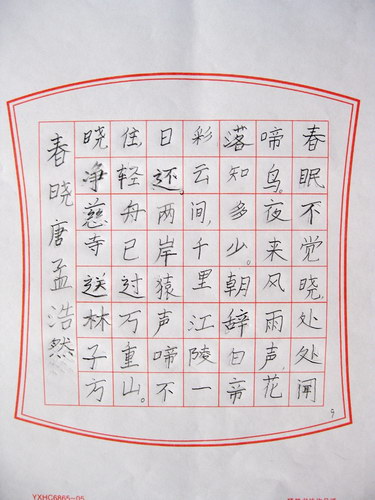 春眠不觉晓,处处闻
啼鸟。夜来风雨声,花
落知多少。朝辞白帝
彩云间,千里江陵一
日还。两岸猿声啼不
住,轻舟已过万重山。
晓净慈寺送林子方
春晓唐孟浩然
9
YXHC6865-05